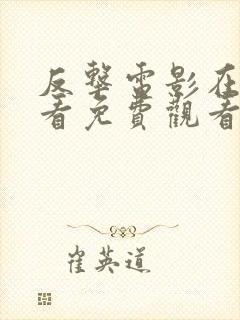 反擊電影在
看免費觀看
崔英道